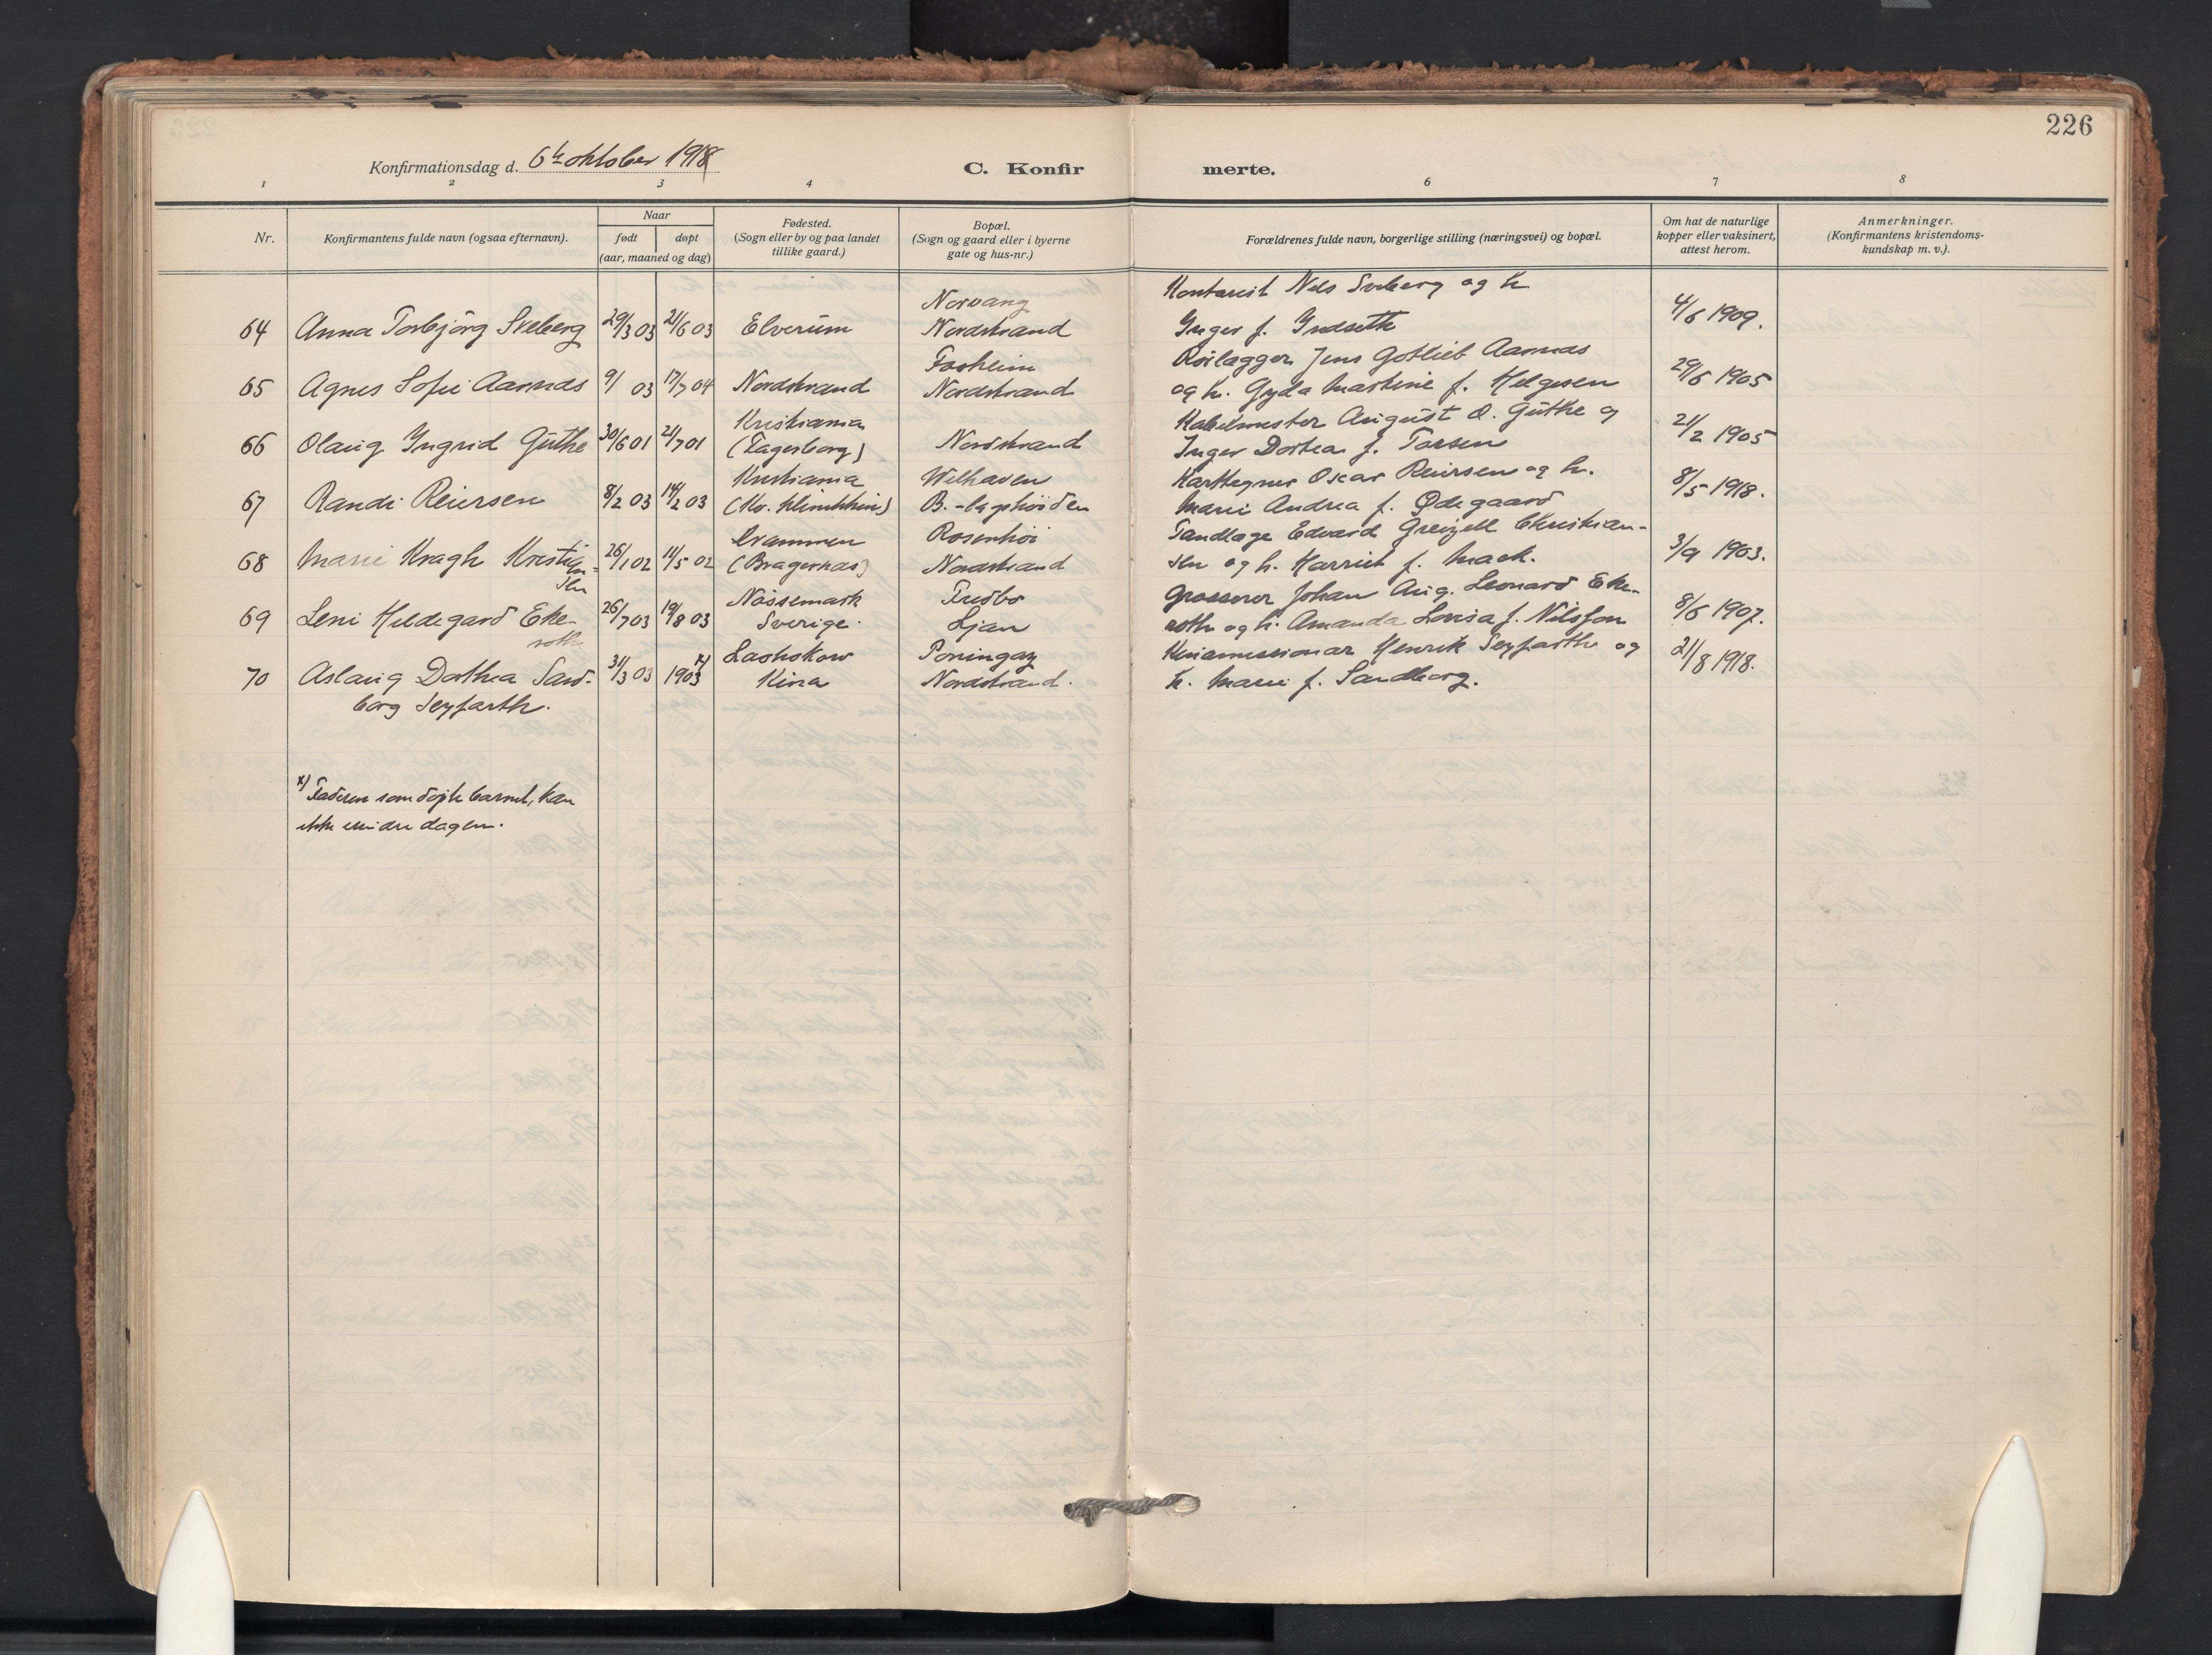 226
Konfirmationsdag d. 6te oktober 1918
C. Konfir merte.
1 2 3 4 6 7 8
Nr.
Konfirmantens fulde navn (ogsaa efternavn).
Naar
født døpt
(aar, maaned og dag)
Fødested.
(Sogn eller by og paa landet
tillike gaard.)
Bopæl.
(Sogn og gaard eller i byerne
gate og hus-nr.)
Forældrenes fulde navn, borgerlige stilling (næringsvei) og bopæl.
Om hat de naturlige
kopper eller vaksinert,
attest herom.
Anmerkninger.
(Konfirmantens kristendoms-
kundskap m. v.).
Norvang Kontorist Nels Sveberg og h
64 Anna Torbjörg Sveberg 29/3 03 21/6 03 Elverum Nordstrand Inger f. Indseth 4/6 1909.
Fosheim Rörlægger Jens Gotlieb Aamnds
65 Agnes Sofie Aamnds 9/ 03 17/7 04 Nordstrand Nordstrand og h. Gyda Mathine f. Helgesen 29/6 1905
Kristiania Kabelmester August O. Güthe og
66 Olaug Ingrid Güthe 30/6 01 21/7 01 (Fagerborg) Nordstrand Inger Dorthea f. Torsen 21/2 1905
Kristiania Welhaven Karttegner Oscar Reiersen og h.
67 Randi Reiersen 8/2 03 14/2 03 B.-lagshöiden Marie Andrea f. Ødegaard 8/5 1918.
Drammen Rosenhöi Tandlæge Edvard Greizell Christian-
68 Marie Kragh Kristian- 26/1 02 11/5 02 (Bragernæs) Nordstrand sen og h. Harriet f. Mack. 3/9 1903.
sen
Nössemark Fredbo Grosserer Johan Aug. Leonard Eke-
69 Leni Hildegard Eke- 26/7 03 19/8 03 Sverige. Ljan roth og h. Amanda Lovisa f. Nilsson 8/6 1907.
roth
Laohokow Poningay Kinamissionær Henrik Seyffarth og
70 Aslaug Dorthea Sand- 31/3 03 1903 x) Kina Nordstrand. h. Marie f. Sandberg. 21/8 1918.
berg Seyfarth.
x) Faderen som döpte barnet, kan
ikke erindre dagen.